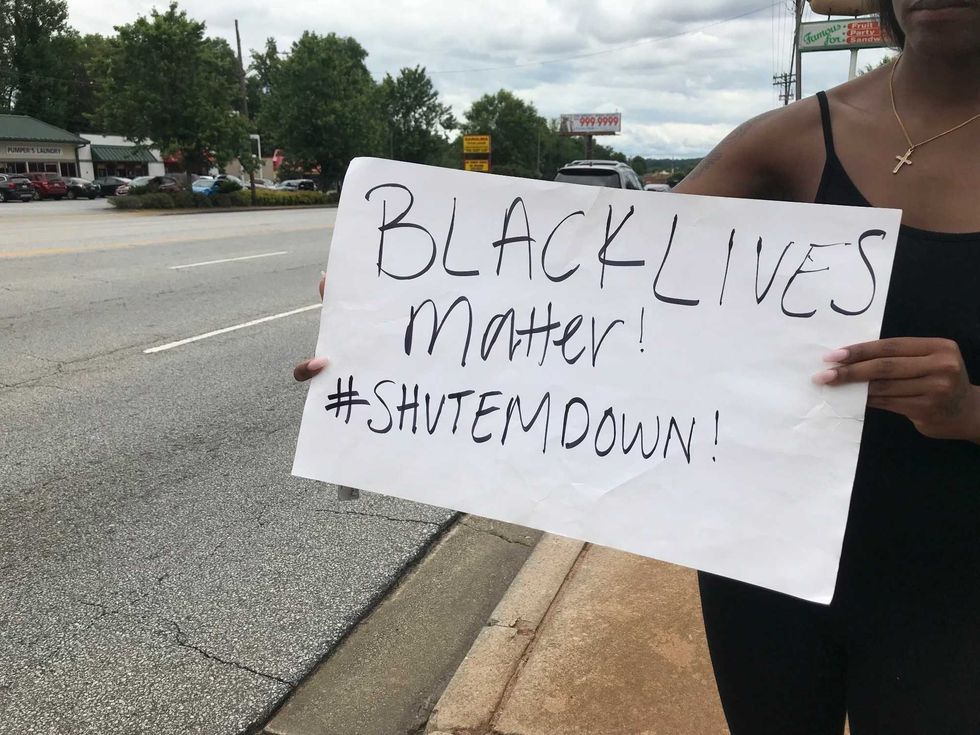 Famous for
Fruit
Party
Sandw
999 9999
PUMPER'S LAUNDRY
BLACK LIVES
Matter!
#SHUTEMDOWN!